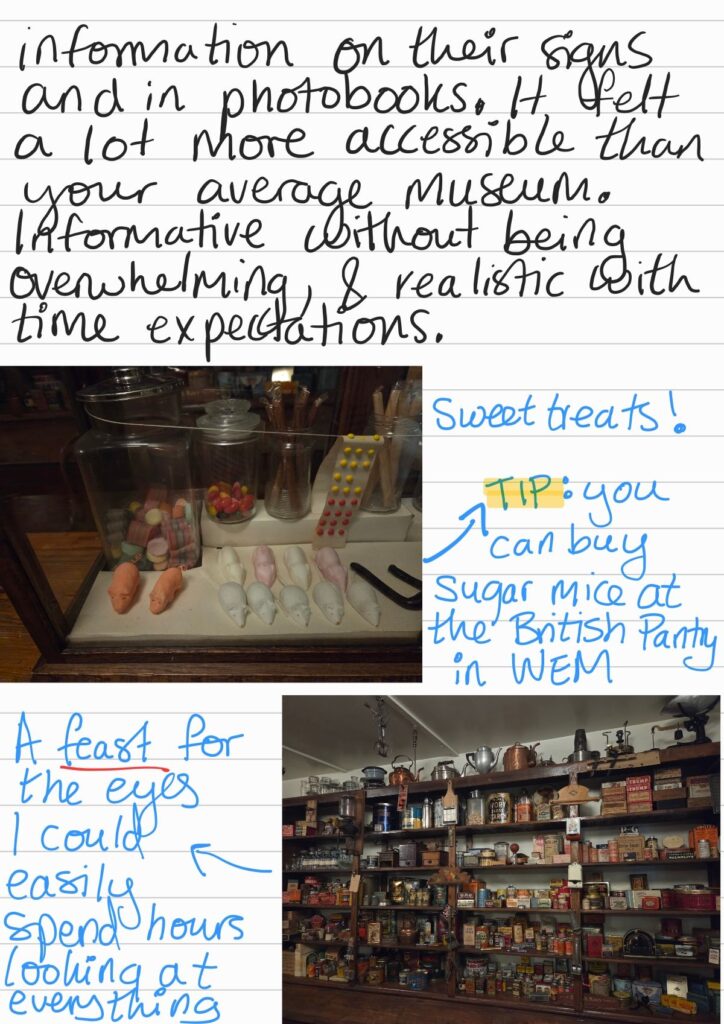 information on their signs
and in photobooks. It felt
a lot more accessible than
your average museum.
Informative without being
overwhelming, & realistic with
time expectations.
Sweet treats!
TIP: you
can buy
sugar mice at
the British Pantry
in WEM
A feast for
the eyes
I could
easily
spend hours
looking at
everything